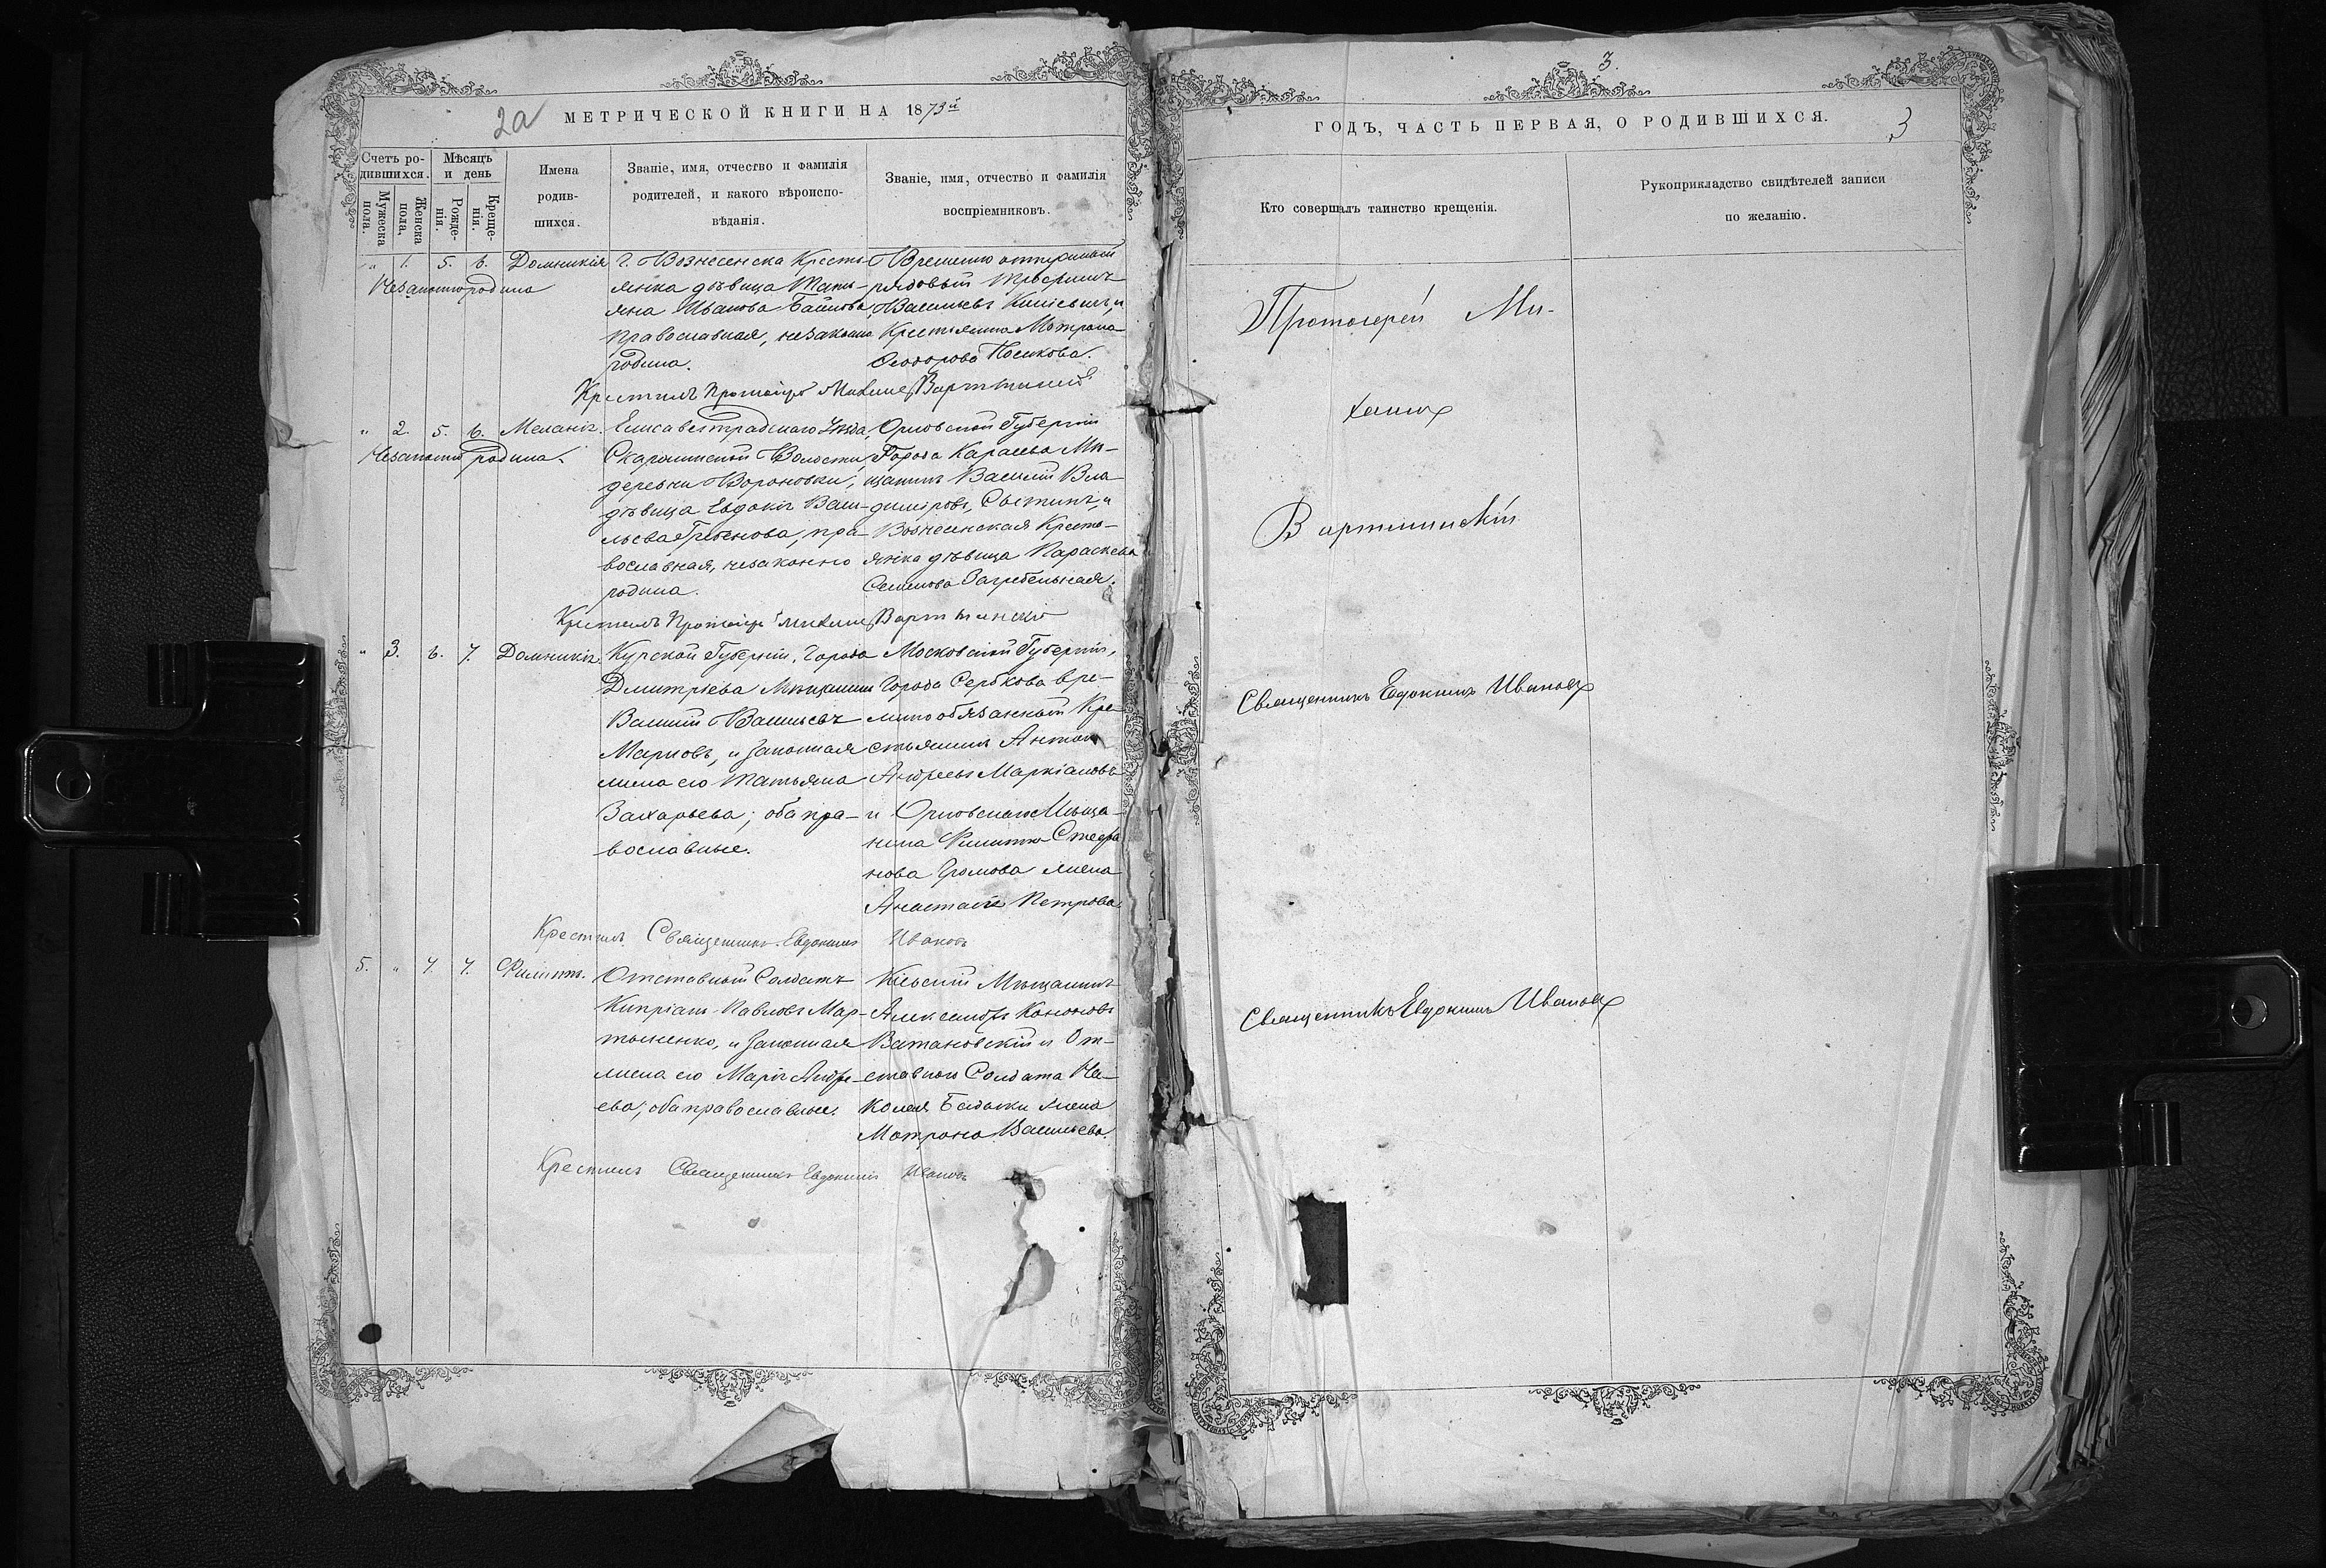 2а
МЕТРИЧЕСКОЙ КНИГИ НА 1873й
Счетъ ро-
дившихся.
Мужеска
пола.
Женска
пола.
Мѣсяцъ
и день
Рожде-
нія.
Креще-
нія.
Имена
родив-
шихся.
Званіе, имя, отчество и фамилія
родителей, и какого вѣроиспо-
вѣданія.
Званіе, имя, отчество и фамилія
воспріемниковъ.
" 1. 5. 6. Домникія
Незаконнородина
г. Вознесенска Кресть-
янка дѣвица Татъ-
яна Иванова
православная, незаконно
родила.
Временно отпускной
рядовый
Васильевъ и
Крестьянка Мотрона
Феодорова Носикова.
Крестилъ Протоіерей Михаилъ Вартминскій
" 2. 5. 6. Меланія.
Незаконно родила.
Елисаветградскаго Уѣзда,
Волости,
деревни Вороновки,
дѣвица Евдокія Васи-
льева Гребенова, пра-
вославная, незаконно
родила.
Орловской Губерніи
Города Карачева Мѣ-
щанинъ Василій Вла-
диміровъ и
Вознесенская Кресть-
янка дѣвица Параскева
Семенова Загребельная.
Крестилъ Протоіерей Михаилъ Вартминскій
" 3. 6. 7. Домникія.
Курской Губерніи, Города
Дмитріева Мѣщанинъ
Василій Васильевъ
Марковъ, и законная
жена его Татьяна
Захарьева; оба пра-
вославные.
Московской Губерніи,
Города вре-
мянно обязанный Кре-
стьянинъ Антонъ
Андреевъ Маркіановъ
и Орловскаго Мѣща-
нина Филиппа Стефа
нова Громова жена
Анастасія Петрова.
Крестилъ Священникъ Евдокимъ Ивановъ
5. " 7. 7. Филиппъ.
Отставный Солдатъ
Кипріанъ Павловъ Мар-
тыненко, и законная
жена его Марія Андре-
ева; оба православные.
Кіевскій Мѣщанинъ
Александръ Кононовъ
Ватановскій и От-
ставнаго Солдата Ни-
колая жена
Мотрона Васильева.
Крестилъ Священникъ Евдокимъ Ивановъ
3.
ГОДЪ, ЧАСТЬ ПЕРВАЯ, О РОДИВШИХСЯ.
3
Кто совершалъ таинство крещенія.
Рукоприкладство свидѣтелей записи
по желанію.
Протоіерей Ми-
хаилъ
Вартминскій
Священникъ Евдокимъ Ивановъ
Священникъ Евдокимъ Ивановъ